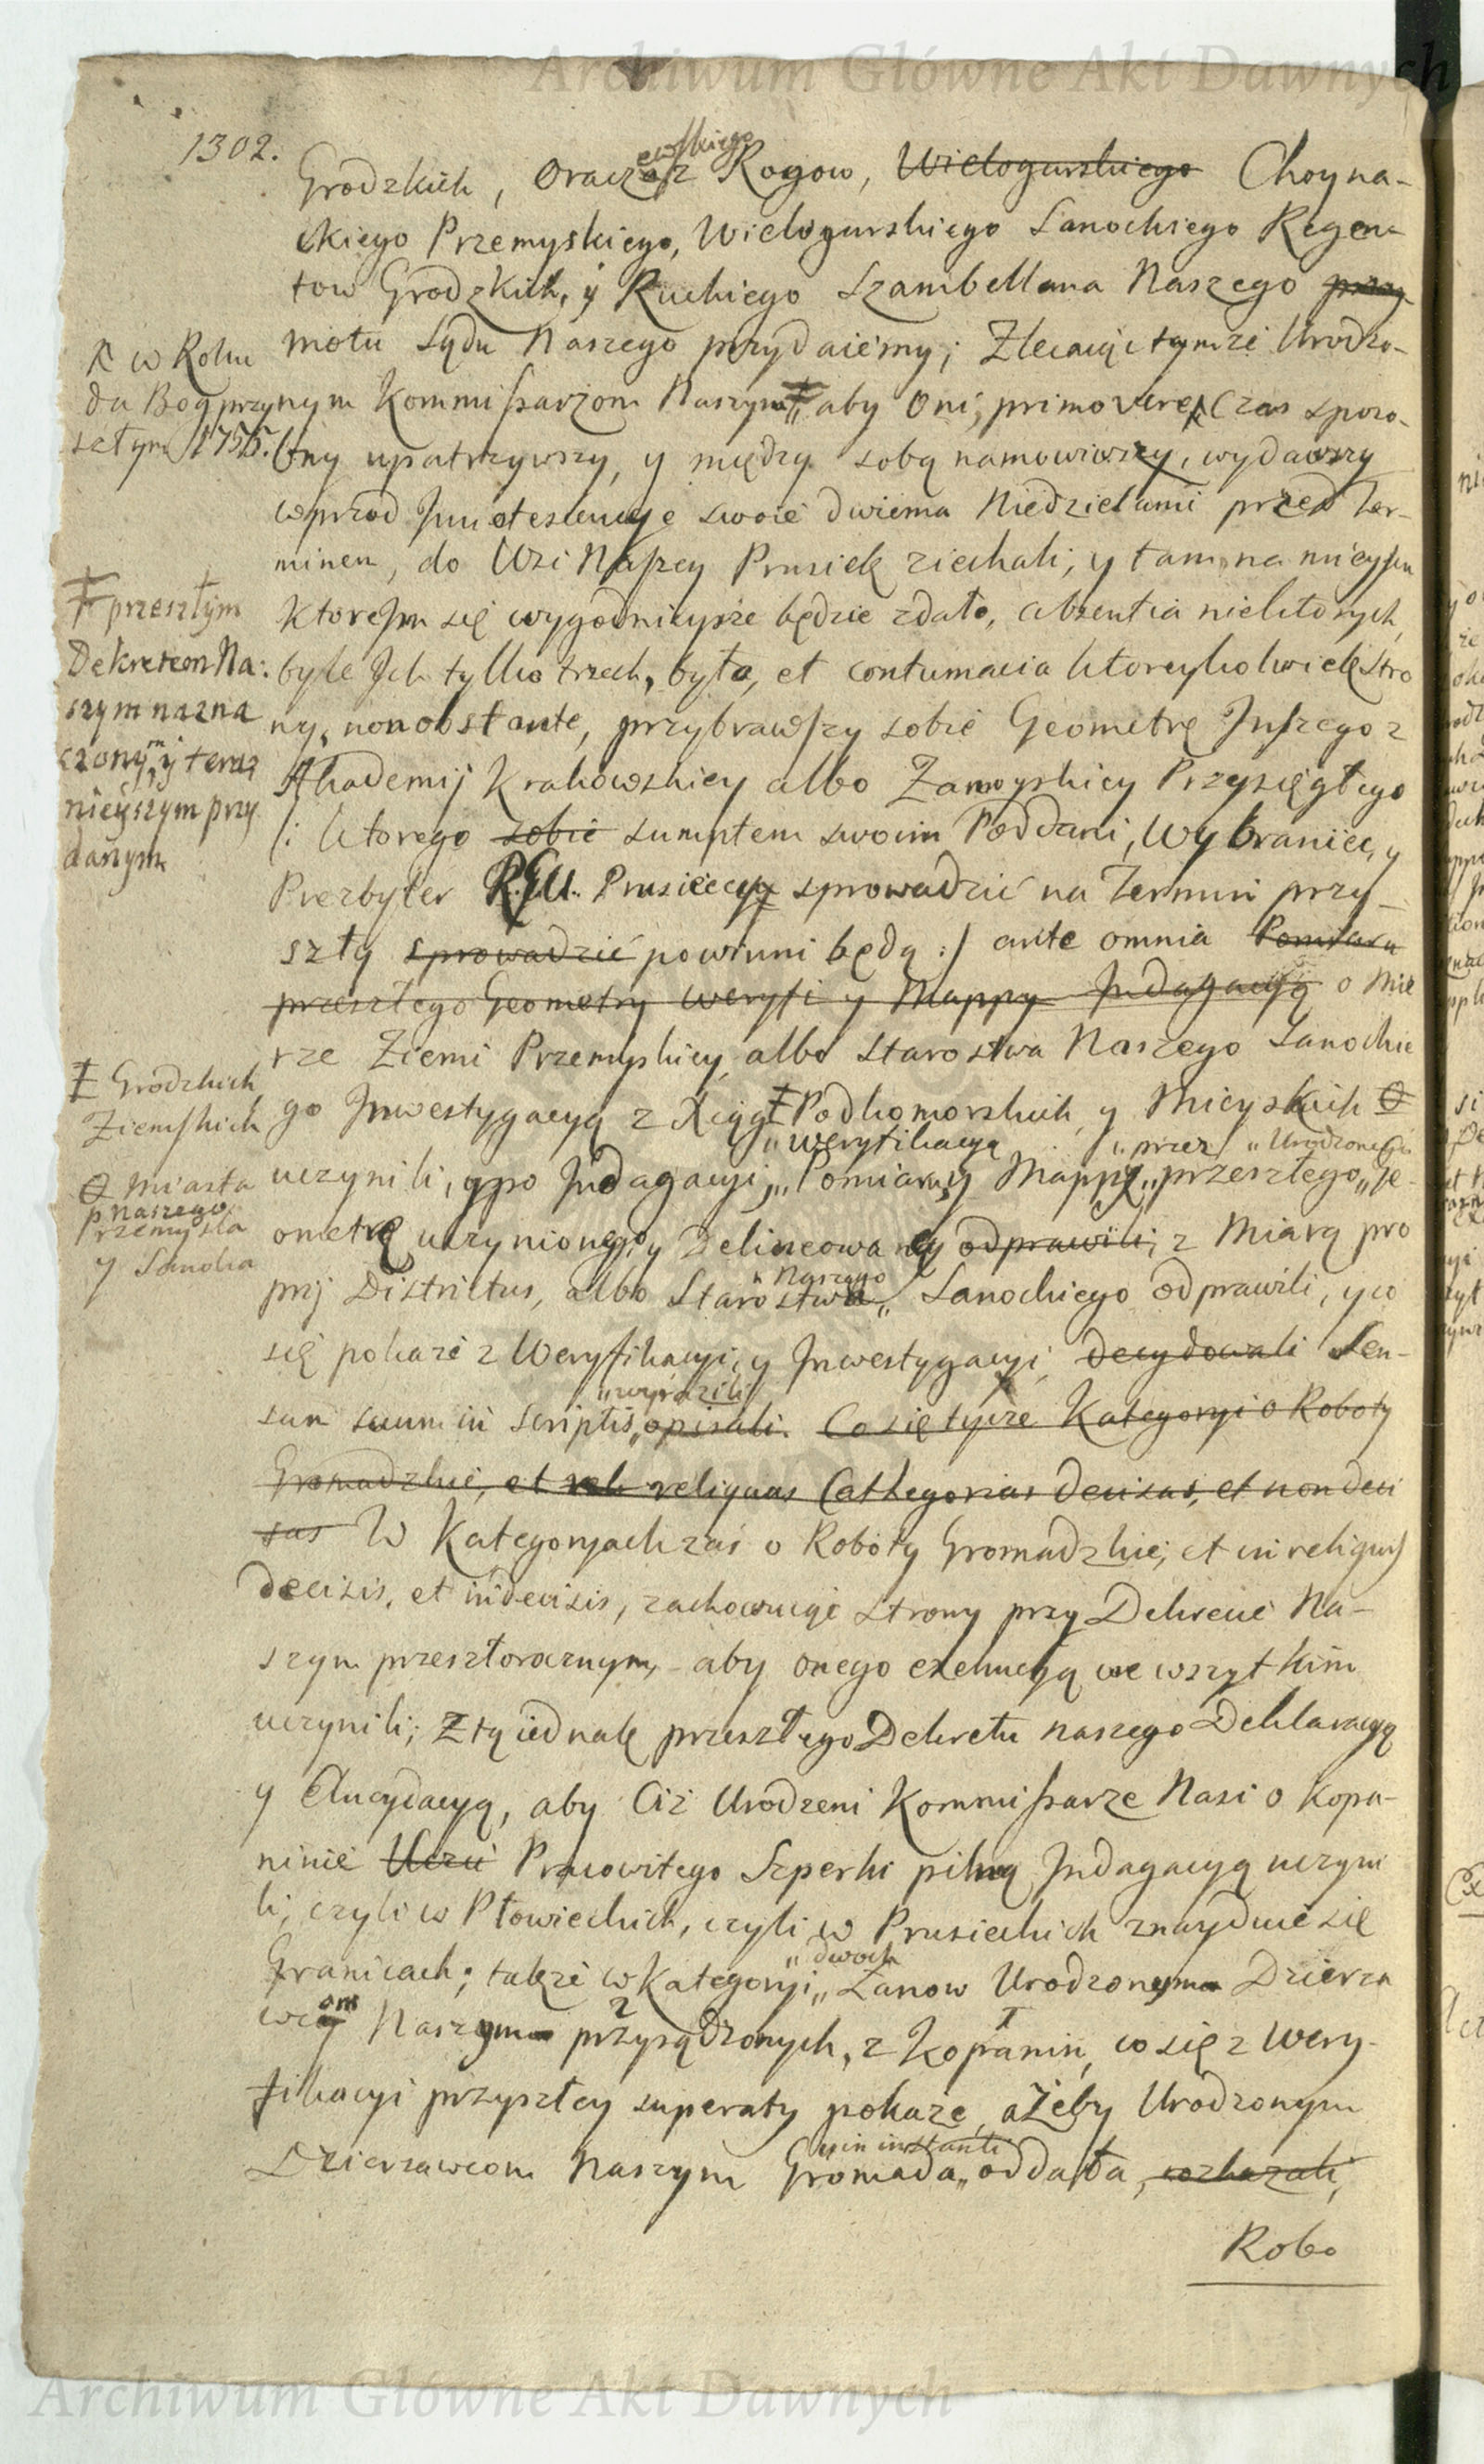 Archiwum Główne Akt Dawnych
1302.
ewskiego
Grodzkich, Oracz z Rogow, Wielogurskiego Choyna-
ckiego Przemyskiego, Wielogurskiego Sanockiego Regen-
tow Grodzkich, y Ruckiego Szambellana Naszego
motu Sądu Naszego przydaiemy; Zlecaiąc tymże Urodzo-
nym Kommissarzom Naszym, aby Oni, primo vere, Czas sposo-
bny upatrzywszy, y między sobą namowiwszy, wydawszy
wprzod Innotescencye swoie dwiema Niedzielami przed Ter-
minem, do Wsi Naszey Prusiek ziechali, y tam na mieyscu
ktorem się wygodnieysze będzie zdało, absentia niektorych,
byle Ich tylko trzech, było, et contumacia ktoreykolwiek stro
ny, non obstante, przybrawszy sobie Geometrę Inszego z
Akademij Krakowskiey albo Zamoyskiey Przysięgłego
/: ktorego sobie sumptem swoim Poddani, Wybraniec, y
Prezbyter R.G.U. Prusieccy sprowadzić na Termin przy-
szły sprowadzić powinni będą :/ ante omnia Pomiaru
przeszłego Geometry Weryfi y Mappy Indagacyą o Mie
rze Ziemi Przemyskiey, albo Starostwa Naszego Sanockie
go Inwestygacyą z Xiąg Podkomorskich, y Mieyskich
„weryfikacyą „przez „Urodzonego
uczynili, y po Indagacyi, „Pomiaru, y Mappy „przeszłego „Ge-
ometrę uczynionego, y Delineowaney odprawili, z Miarą pro
prij Districtus, albo Starostwa „Sanockiego odprawili, y co
„Naszego
się pokaże z Weryfikacyi, y Inwestygacyi, decydowali Sen-
„wyrazili
sum suum in scriptis „opisali. Co się tycze Kategoryi o Roboty
Gromadzkie, et reliquas Cathegorias decisas, et non deci
sas W Kategoryach zaś o Roboty Gromadzkie, et in reliquis
decisis, et indecisis, zachowuiąc strony przy Dekrecie Na-
szym przeszłorocznym, aby onego exekucyą we wszytkim
uczynili; Z tą iednak przeszłego Dekretu naszego Deklaracyą
y Elucydacyą, aby Ciż Urodzeni Kommissarze Nasi o kopa-
ninie Pracowitego Szperki pilną Indagacyą uczyni
li, czyli w Płowieckich, czyli w Prusieckich znayduie się
„dwoch
Granicach; także w Kategoryi „Łanow Urodzonym Dzierża
wcom Naszym przysądzonych, z Kopanin, co się z Wery-
fikacyi przyszłey superaty pokaże, ażeby Urodzonym
„in instanti
Dzierzawcom Naszym Gromada „oddała, rozkazali,
Robo
w Roku
da Bog przy
szłym 1755.
przeszłym
Dekretem Na:
szym nazna
czonym, y teraz
nieyszym przy
danym
Grodzkich
Ziemskich
Miasta
Naszego
Przemysla
y Sanoka
Archiwum Główne Akt Dawnych